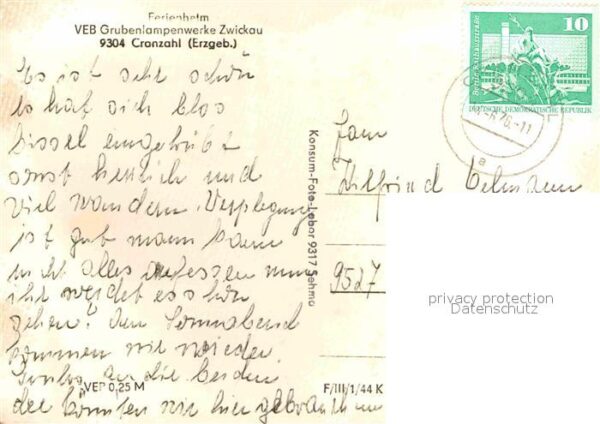 Ferienheim
VEB Grubenlampenwerke Zwickau
9304 Cranzahl (Erzgeb.)
Es ist sehr schön
es hat sich blos
bissel eingetrübt
sonst herrlich und
viel wandern. Verplegung
ist gut mann kann
nicht alles aufessen nun
ihr werdet es schön
gehen? den Sonnabend
kommen wir wieder.
an die beiden
die könnten wir hier gebrauchen
VEP 0,25 M
F/III/1/44 K
Konsum-Foto-Labor 9317 Sehma
10
DEUTSCHE DEMOKRATISCHE REPUBLIK
6.76.-11
a
Fam
Wilfried
9527
privacy protection
Datenschutz